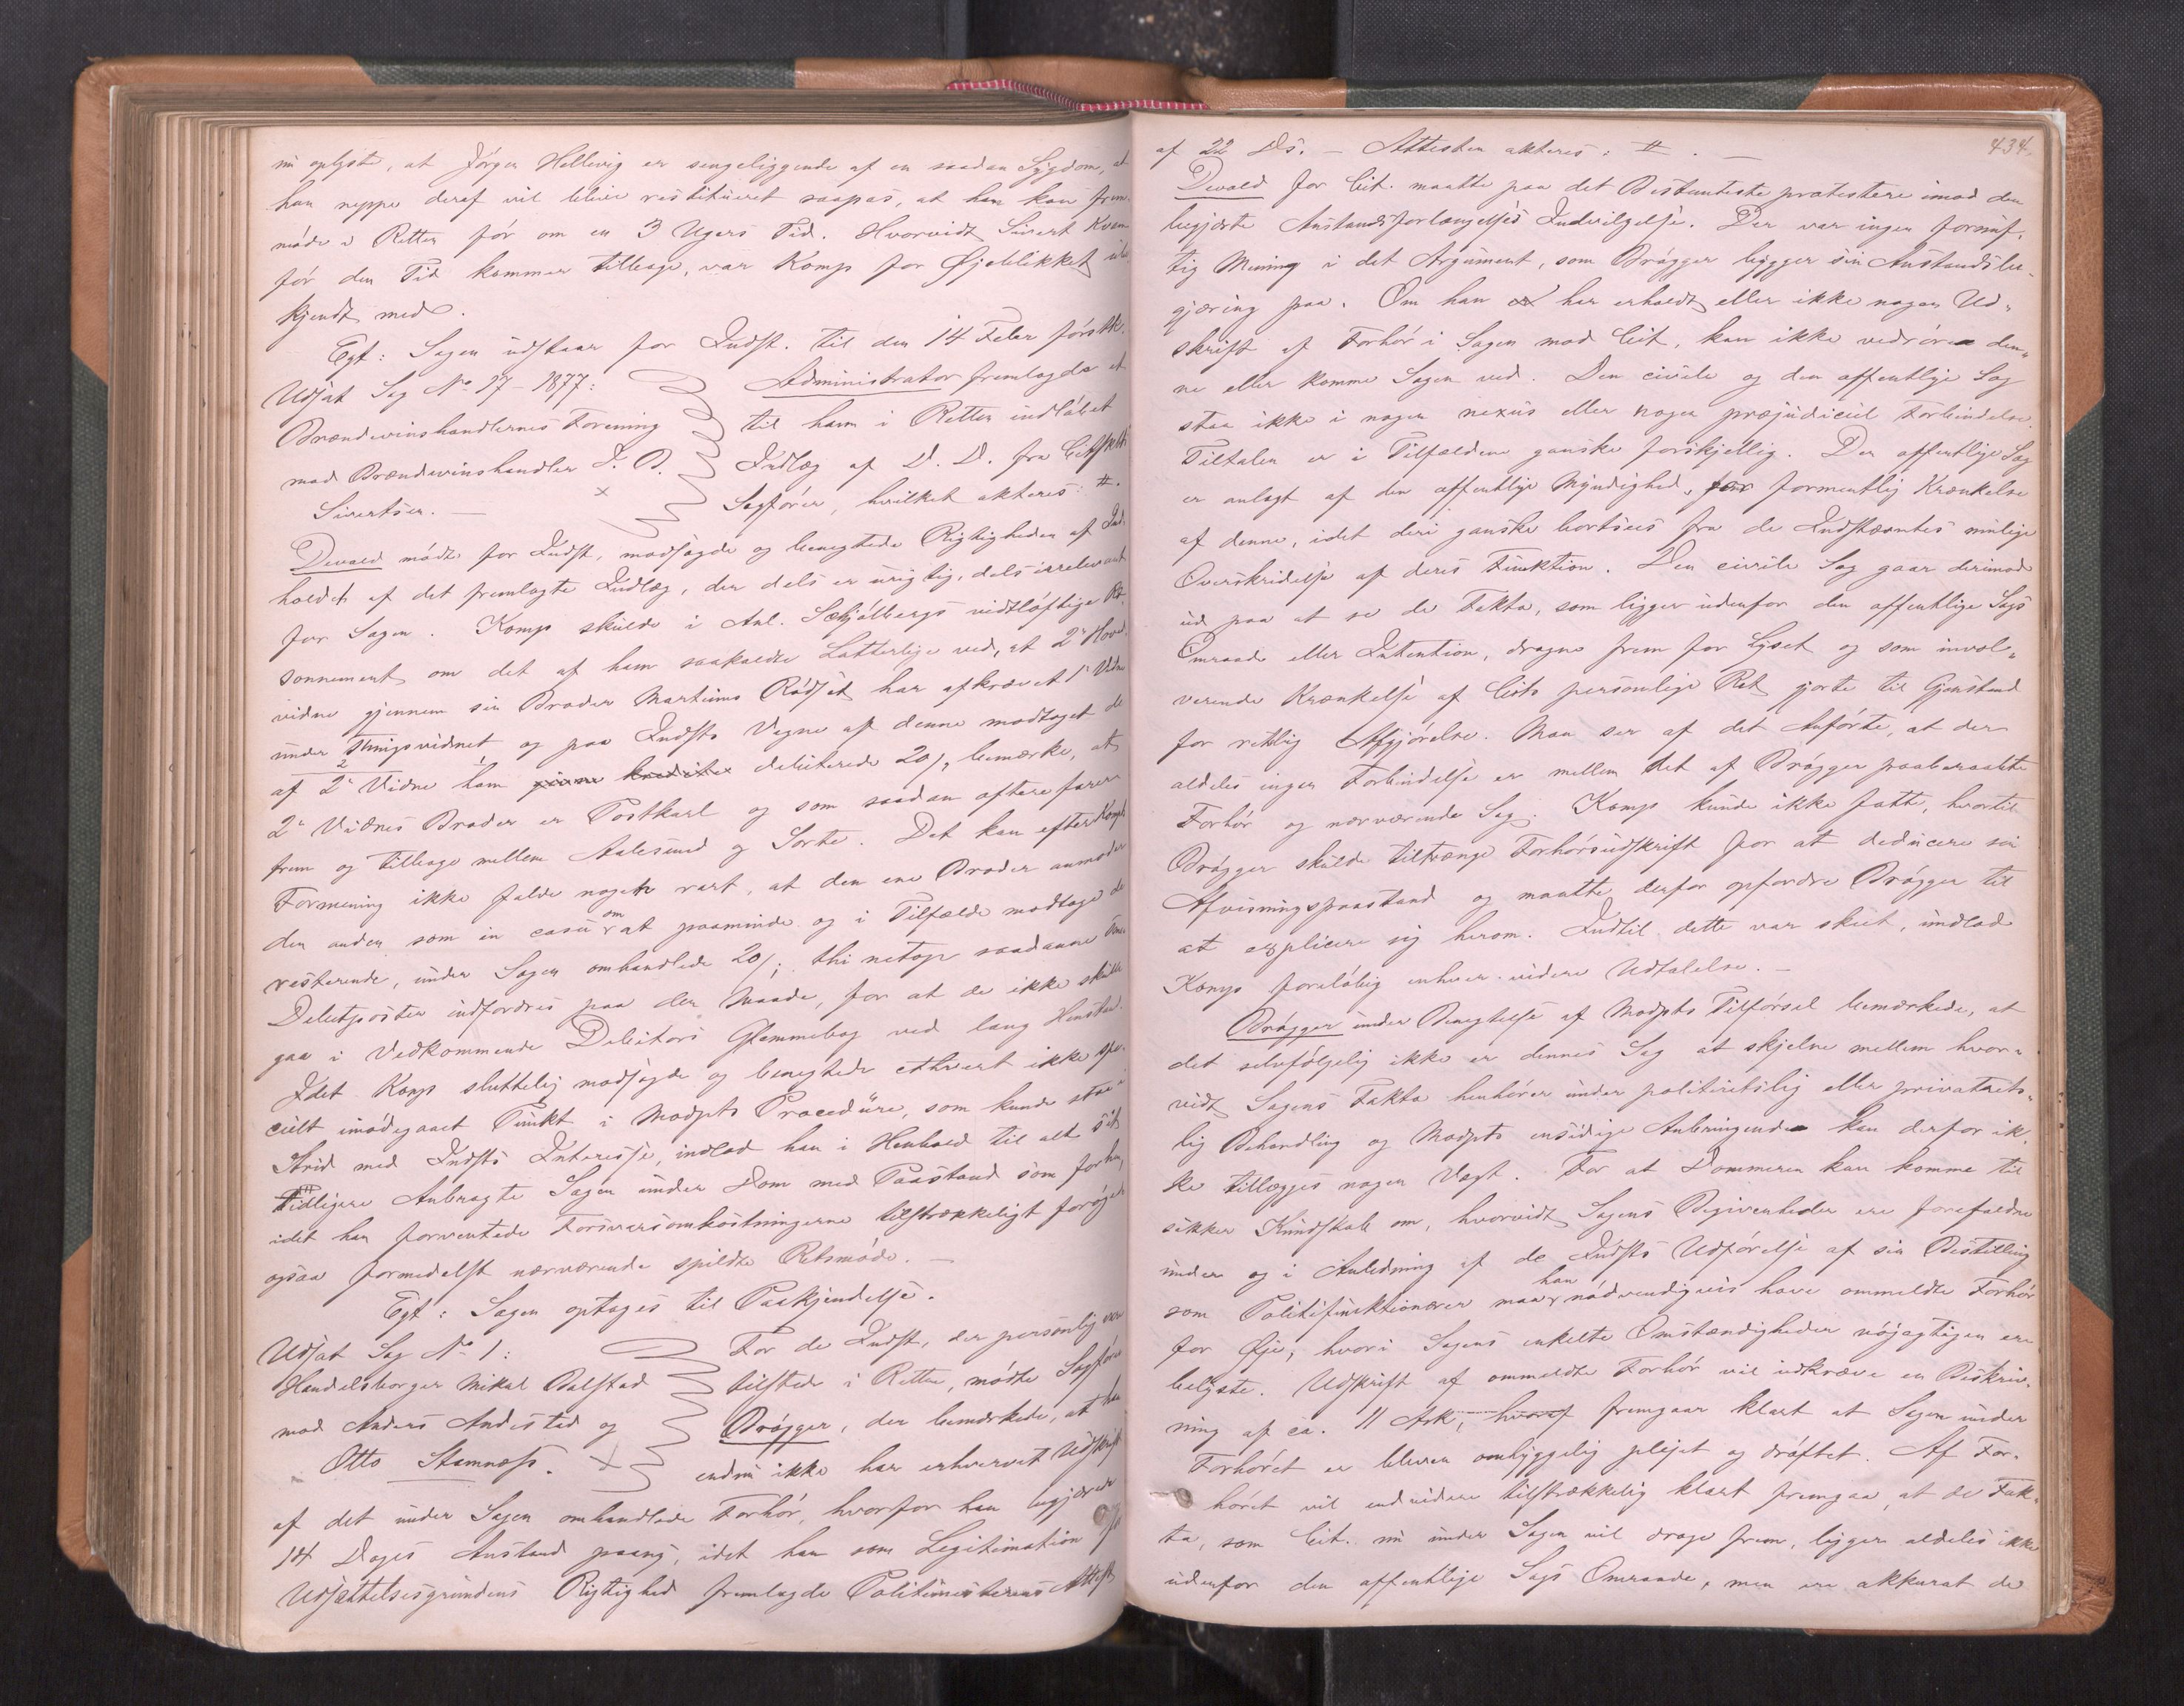 nu oplyste, at Jörgen Hellevig er sengeliggende af en saadan Sygdom, at
han neppe deraf vil blive restitueret saapas, at han kan frem-
möde i Retten för om en 3 Ugers Tid. Hvorvidt Sivert Kvam
för den Tid kommer tilbage, var Komp for Øjeblikket ube-
kjendt med.
Egt: Sagen udstaar for Indst. til den 14 Febr förstk.
Udsat Sag No 17 - 1877:
Brændevinshandlernes Forening
mod Brændevinshandler J. B.
Sivertsen. —
Administrator fremlagde et
til ham i Retten indlöbet
Indlæg af D. D. fra Citpts
Sagförer, hvilket akteres: #.
Devold mödte for Indst, modsagde og benegtede Rigtigheden af Ind-
holdet af det fremlagte Indlæg, der dels er urigtig, dels irrelevant
for Sagen. Komp skulde i Anl. Schjölbergs vidtlöftige Ræ-
sonnement om det af ham saakaldte Latterlige ved, at 2d Hoved-
vidne gjennem sin Broder Martinus Rödset har afkrævet 1' Vidne
under Thingsvidnet og paa Indsts Vegne af denne modtaget de
af 2' Vidne ham debiterede 20 /, bemærke, at
2' Vidnes Broder er Postkarl og som saadan oftere farer
frem og tilbage mellem Aalesund og Sorte. Det kan efter Komps
Formening ikke falde noget rart, at den ene Broder anmoder
den anden som in casu om at paaminde og i Tilfælde modtage de
resterende, under Sagen omhandlede 20 /; thi netop saadanne smaa
Debetposter indfordres paa den Maade, for at de ikke skulle
gaa i Vedkommende Debitors Glemmebog ved lang Henstand.
Idet Komp sluttelig modsagde og benegtede ethvert ikke spe-
cielt imödegaaet Punkt i Modpts Procedure, som kunde staa i
Strid med Indsts Interesse, indlod han i Henhold til alt sit
Tidligere Anbragte Sagen under Dom med Paastand som forhen,
idet han forventede Forsvarsomkostningerne tilstrækkeligt forøget
ogsaa formedelst nærværende spildte Retsmöde. —
Egt: Sagen optages til Paakjendelse.
Udsat Sag No 1:
Handelsborger Mikal Balstad
mod Anders Andestad og
Otto Stamnæss.
For de Indst, der personlig var
tilstede i Retten, mödte Sagförer
Brögger, der bemærkede, at han
endnu ikke har erhvervet Udskrift
af det under Sagen omhandlede Forhör, hvorfor han begjærede
14 Dages Anstand paany, idet han som Legitimation for
Udsættelsesgrundens Rigtighed fremlagde Politimesterens Attest
434.
af 22 Ds. — Attesten akteres: #. —
Devold for Cit. maatte paa det Bestemteste protestere imod den
begjærte Anstandsforlængelses Indvilgelse. Der var ingen fornuf-
tig Mening i det Argument, som Brögger bygger sin Anstandsbe-
gjæring paa. Om han har erholdt eller ikke nogen Ud-
skrift af Forhör i Sagen mod Cit, kan ikke vedröre den-
ne eller komme Sagen ved. Den civile og den offentlige Sag
staa ikke i nogen nexus eller nogen præjudiciel Forbindelse.
Tiltalen er i Tilfældene ganske forskjellig. Den offentlige Sag
er anlagt af den offentlige Myndighed, for formentlig Krænkelse
af denne, idet deri ganske bortsees fra de Indstævntes mulige
Overskridelse af deres Funktion. Den civile Sag gaar derimod
ud paa at se de Fakta, som ligger udenfor den offentlige Sags
Omraade eller Intention, dragne frem for Lyset og som invol-
verende Krænkelse af Cits personlige Ret gjorte til Gjenstand
for retslig Afgjörelse. Man ser af det Anförte, at der
aldeles ingen Forbindelse er mellem det af Brögger paaberaabte
Forhör og nærværende Sag. Komp kunde ikke fatte, hvortil
Brögger skulde tiltrænge Forhörsudskrift for at deducere sin
Afvisningspaastand og maatte derfor opfordre Brögger til
at explicere sig herom. Indtil dette var skeet, undlod
Komp forelöbig enhver videre Udtalelse. —
Brögger under Benegtelse af Modpts Tilförsel bemærkede, at
det selvfölgelig ikke er dennes Sag at skjelne mellem hvor-
vidt Sagens Fakta henhörer under politiretslig eller privatrets-
lig Behandling og Modpts ensidige Anbringende kan derfor ik-
ke tillægges nogen Vægt. For at Dommeren kan komme til
sikker Kundskab om, hvorvidt Sagens Begivenheder ere forefaldne
under og i Anledning af de Indsts Udførelse af sin Bestilling
som Politifunktionærer maa han nödvendigvis have ommeldte Forhör
for Øje, hvori Sagens enkelte Omstændigheder nöjagtigen ere
belyste. Udskrift af ommeldte Forhör vil udkræve en Beskriv-
ning af ca. 11 Ark, hvoraf fremgaar klart at Sagen under
Forhöret er bleven omhyggelig plejet og dröftet. Af For-
höret vil endvidere tilstrækkelig klart fremgaa, at de Fak-
ta, som Cit. nu under Sagen vil drage frem, ligger aldeles ikke
udenfor den offentlige Sags Omraade, men ere akkurat de